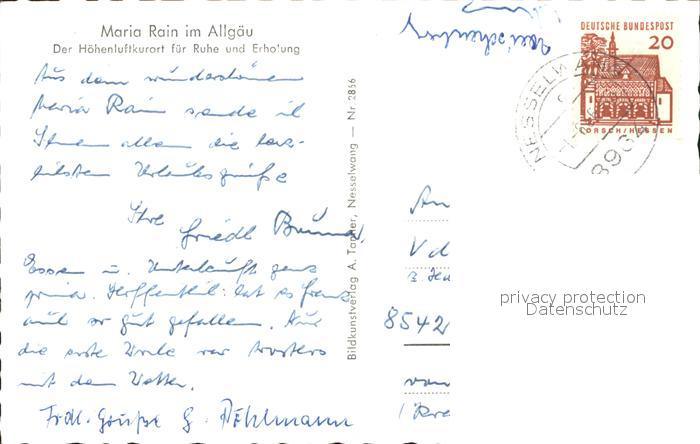 Maria Rain im Allgäu
Der Höhenluftkurort für Ruhe und Erholung
Aus dem wunderschönen
Maria Rain sende ich
Ihnen allen die herz-
lichsten Urlaubsgrüße
Ihre
Friedl
Essen u. Unterkunft ganz
prima. Hoffentlich hat es
auch so gut gefallen.
die erste Woche war
mit dem Wetter.
Frdl. Grüße G. Pöhlmann
Bildkunstverlag A. Tanner, Nesselwang — Nr. 2866
DEUTSCHE BUNDESPOST
20
LORSCH/HESSEN
NESSELWANG
8964
An
8542
von
privacy protection
Datenschutz